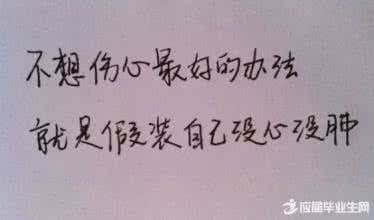 不想伤心最好的办法
就是假装自己没心没肺
应届毕业生网